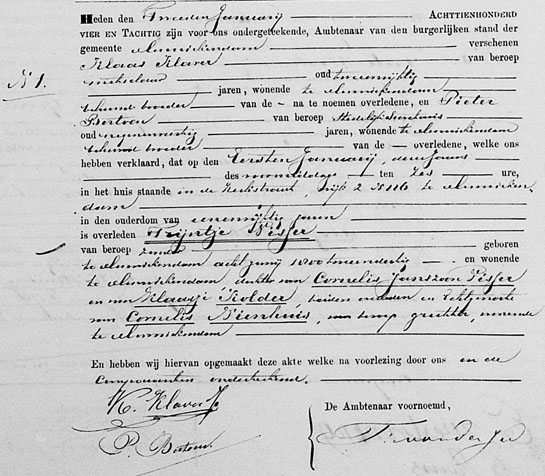 Heden den Tweeden Januarij ACHTTIENHONDERD
VIER EN TACHTIG zijn voor ons ondergeteekende, Ambtenaar van den burgerlijken stand der
gemeente Monnickendam verschenen
N 1. Klaas Klaver van beroep
oud
jaren, wonende te Monnickendam
behuwd broeder van de na te noemen overledene, en Pieter
Bertoen van beroep
oud jaren, wonende te Monnickendam
behuwd broeder van de overledene, welke ons
hebben verklaard, dat op den Eersten Januarij, dezes jaars
des voormiddags ten zes ure,
in het huis staande in de Kerkstraat, wijk 2 N 116 te Monnicken
dam
in den ouderdom van jaren
is overleden Trijntje Visser
van beroep zonder geboren
te Monnickendam acht Junij 1800 tweeendertig en wonende
te Monnickendam, dochter van Cornelis Janszoon Visser
en van Klaasje Kolder, beiden overleden en Echtgenoote
van Cornelis Nienhuis, van beroep wonende
te Monnickendam
En hebben wij hiervan opgemaakt deze akte welke na voorlezing door ons en de
Comparanten onderteekend.
K. Klaver
De Ambtenaar voornoemd,
P. Bertoen